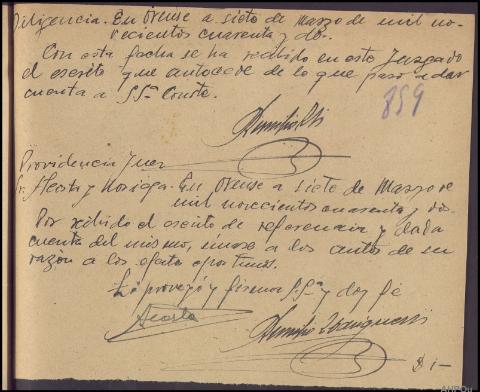 Diligencia. En Orense a siete de Marzo de mil no-
vecientos cuarenta y dos.
Con esta fecha se ha recibido en este Juzgado
el escrito que antecede de lo que paso a dar
cuenta a SSª Conste.
859
Providencia Juez
Sr. Acosta y Noriega. En Orense a siete de Marzo de
mil novecientos cuarenta y dos.
Por recibido el escrito de referencia y dada
cuenta del mismo, únase a los autos de su
razón a los efetos oportunos.
Lo proveyó y firma SSª y doy fé
Acosta